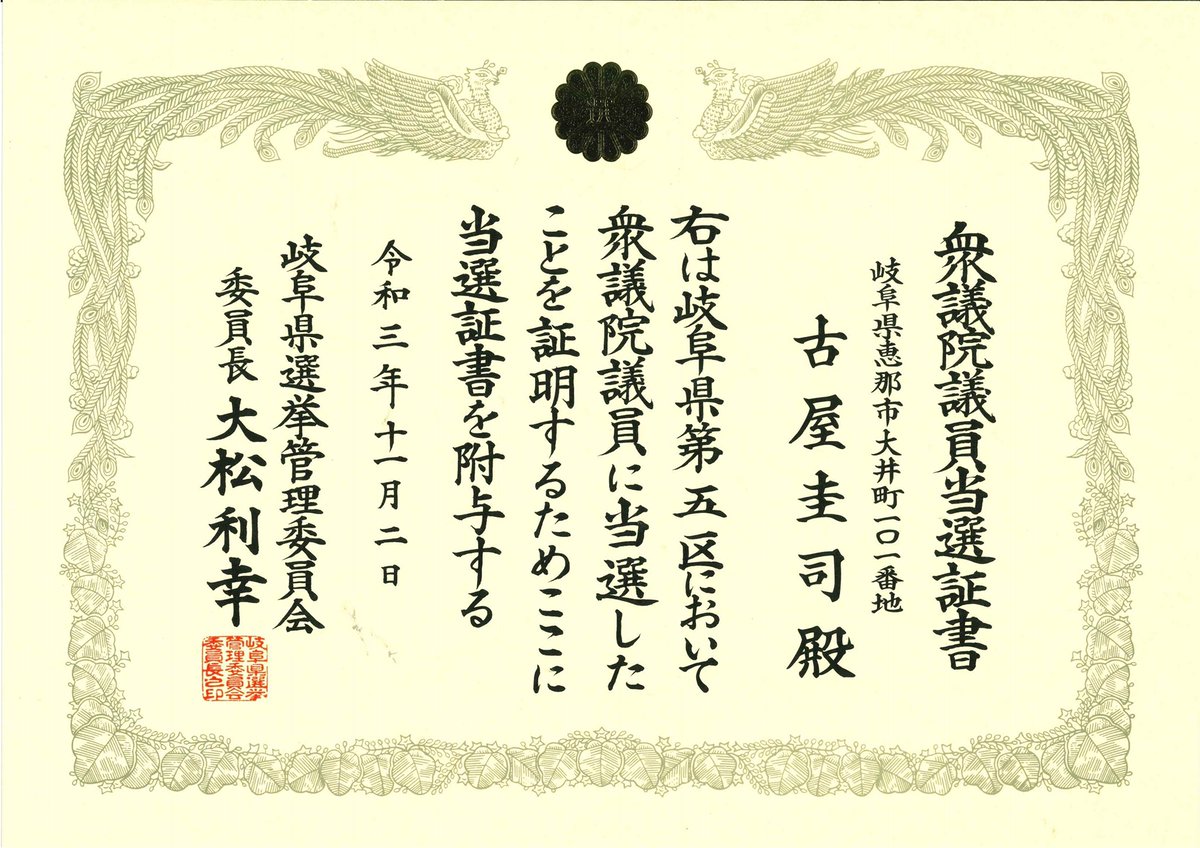 衆議院議員当選証書
岐阜県恵那市大井町一〇一番地
古屋圭司殿
右は岐阜県第五区において
衆議院議員に当選した
ことを証明するためここに
当選証書を附与する
令和三年十一月二日
岐阜県選挙管理委員会
委員長 大松利幸
岐阜県選挙
管理委員会
委員長之印